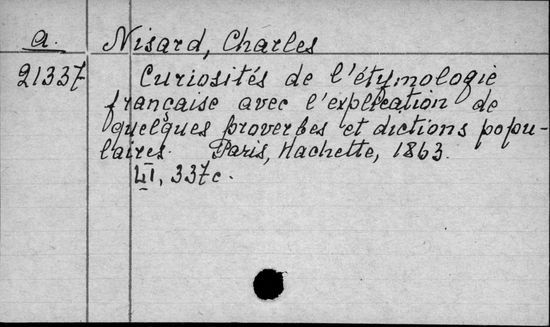 a. Nisard, Charles
21337 Curiosités de l'étymologie
française avec l'explication de
quelques proverbes et dictions popu-
laires. Paris, Hachette, 1863.
LII, 337 c.